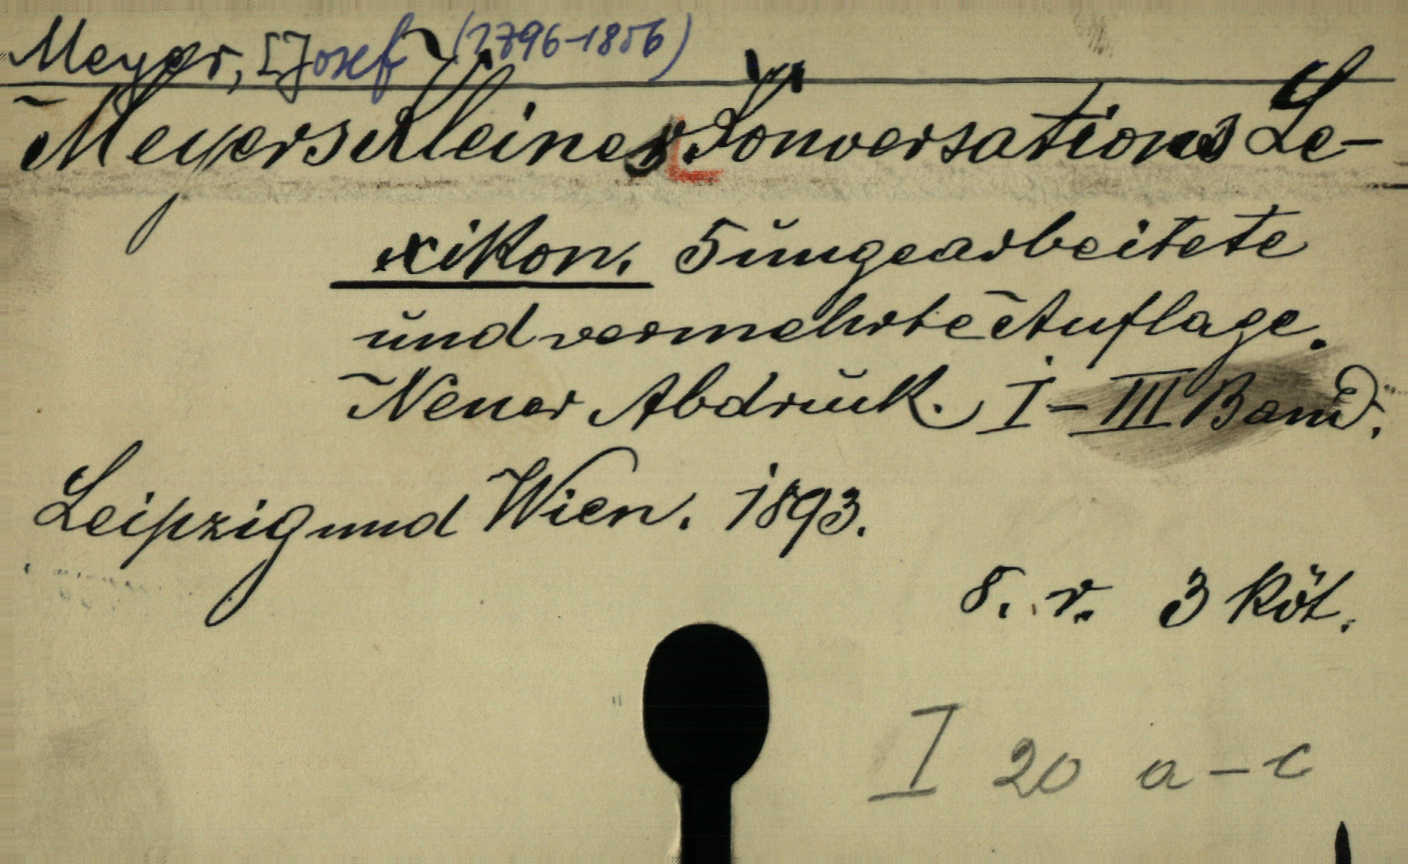 Meyer, [Josef] (1796-1856)
Meyers Kleines Konversations Le-
xikon. 5 ŭmgearbeitete
ŭnd vermehrte Auflage.
Neuer Abdrŭck. I-III Band.
Leipzig und Wien. 1893.
8. r. 3 Köt.
I 20 a-c